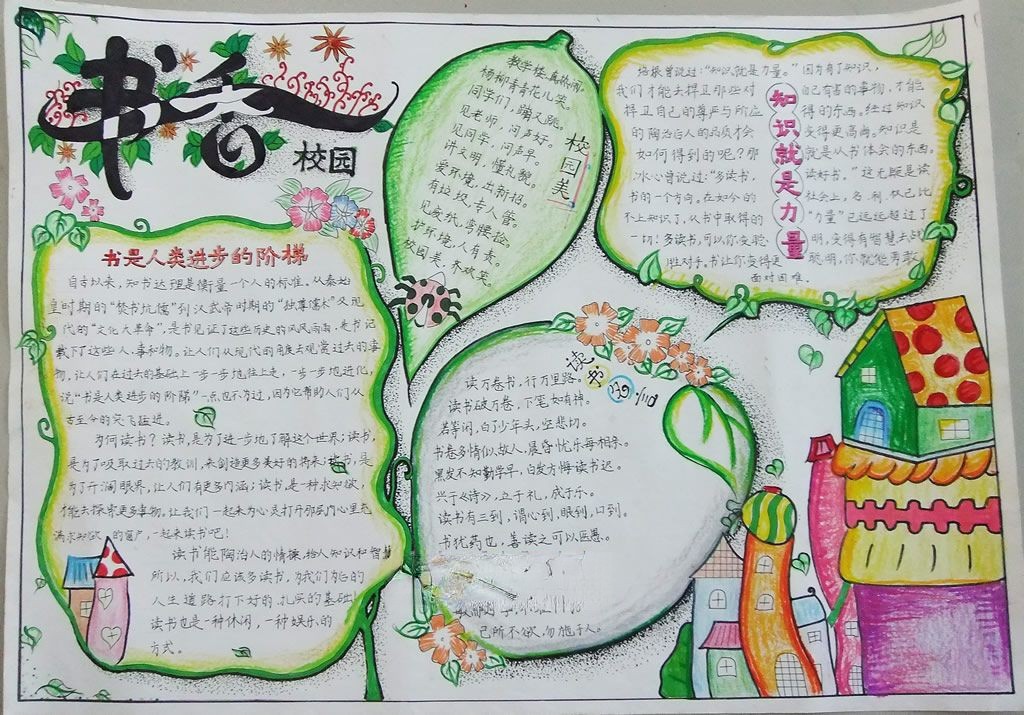 书香
校园
书是人类进步的阶梯
自古以来，知书达理是衡量一个人的标准。从秦始
皇时期的“焚书坑儒”到汉武帝时期的“独尊儒术”又现
代的“文化大革命”，是书见证了这些历史的风风雨雨，是书记
载下了这些人、事和物。让人们从现代的角度去观赏过去的事
物，让人们在过去的基础上一步一步地往上走，一步一步地进化，
说“书是人类进步的阶梯”一点也不为过，因为它帮助人们从
古至今的突飞猛进。
为何读书？读书，是为了进一步地了解这个世界；读书，
是为了吸取过去的教训，来创造更多美好的将来；读书，是
为了开阔眼界，让人们有更多内涵；读书，是一种求知欲，
才能去探究更多事物。让我们一起来为心灵打开那层内心里充
满求知欲的窗户，一起来读书吧！
读书能陶冶人的情操，给人知识和智慧
所以，我们应该多读书，为我们为后的
人生道路打下好的、扎实的基础！
读书也是一种休闲，一种娱乐的
方式。
校园美
教学楼，真热闹，
杨柳青青花儿笑。
同学们，蹦又跳。
见老师，问声好。
见同学，问声早。
讲文明，懂礼貌。
爱环境，出新招。
有垃圾，专人管。
见废纸，弯腰捡。
护环境，人有责。
校园美，齐欢笑。
读书名言
读万卷书，行万里路。
读书破万卷，下笔如有神。
若等闲，白了少年头，空悲切。
书卷多情似故人，晨昏忧乐每相亲。
黑发不知勤学早，白发方悔读书迟。
兴于《诗》，立于礼，成于乐。
读书有三到，谓心到，眼到，口到。
书犹药也，善读之可以医愚。
己所不欲，勿施于人。
知识就是力量
培根曾说过：“知识就是力量。”因为有了知识，
我们才能去捍卫那些对自己有害的事物，才能
捍卫自己的尊严与所应得的东西。经过知识
的陶冶后人的品质才会变得更高尚。知识是
如何得到的呢？那就是从书体会的东西。
冰心曾说过：“多读书，读好书。”这无疑是读
书的一个方向。在如今的社会上，名、利、林已比
不上知识了，从书中取得的“力量”已远远超过了
一切！多读书，可以你变聪明，变得有智慧去战
胜对手。书让你变得更聪明，你就能勇敢
面对困难。